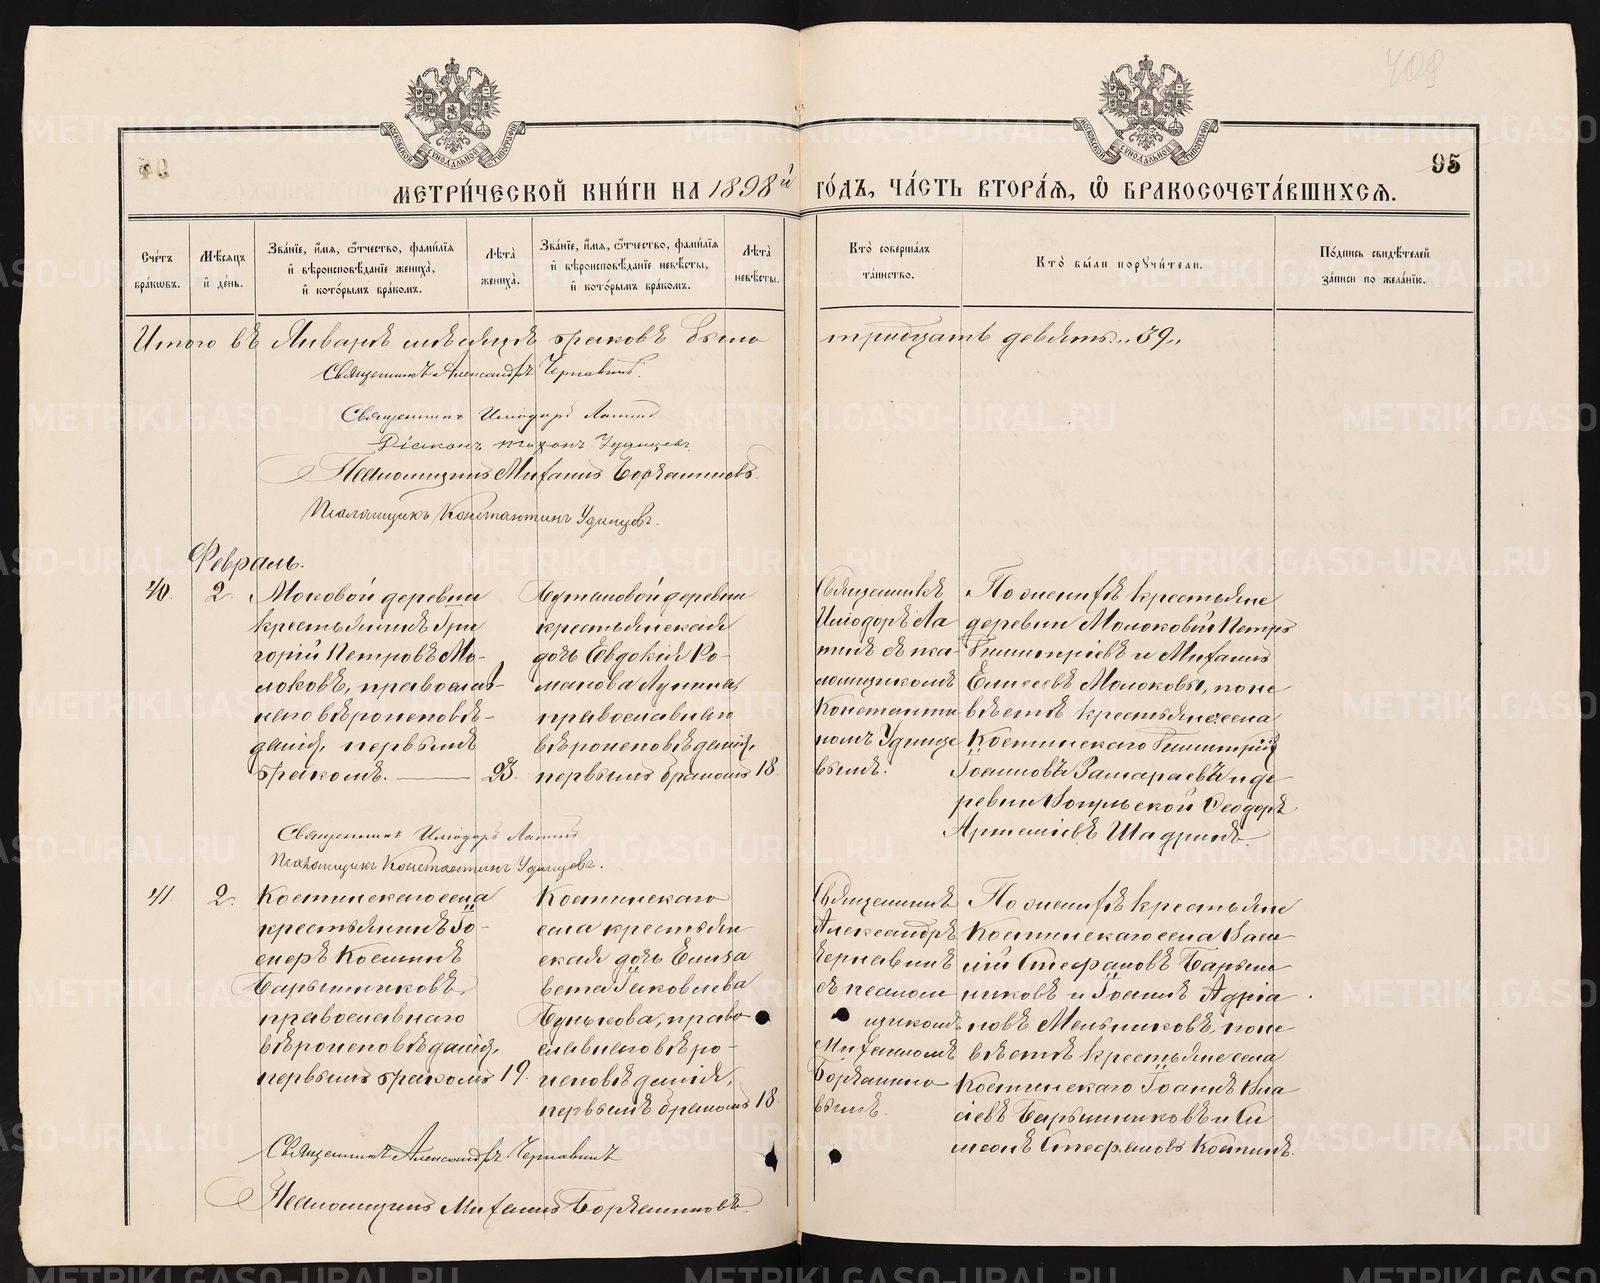 409
95
МЕТРИ́ЧЕСКОЙ КНИ́ГИ НА 1898й ГО́ДЪ, ЧА́СТЬ ВТОРА́Я, Ѿ БРАКОСОЧЕТА́ВШИХСЯ.
Сче́тъ бра́ковъ.
Мѣ́сяцъ и́ де́нь.
Зва́нїе, и́мя, о́тчество, фами́лїя и́ вѣроисповѣ́данїе жениха̀, и́ кото́рымъ бра́комъ.
Лѣ́та̀ жениха̀.
Зва́нїе, и́мя, о́тчество, фами́лїя и́ вѣроисповѣ́данїе невѣ́сты, и́ кото́рымъ бра́комъ.
Лѣ́та̀ невѣ́сты.
Кто̀ соверша́лъ та́инство.
Кто̀ бы́ли порꙋчи́тели.
По́дпись свидѣ́телей за́писи по жела́нїю.
Итого въ Январѣ мѣсяцѣ браковъ было тридцать девять „39„
Священникъ Александръ Чернавинъ.
Священникъ Илиодоръ Лапинъ
Діаконъ Тихонъ Удинцевъ
Псаломщикъ Михаилъ
Псаломщикъ Константинъ Удинцевъ.
Февраль.
40.
2.
Моковой деревни
крестьянинъ Гри
горій Петровъ Мо-
локовъ, православ-
наго вѣроисповѣ-
данія, первымъ
бракомъ.
23.
деревни
крестьянская
дочь Евдокія Ро-
манова Лупина,
православнаго
вѣроисповѣданія,
первымъ бракомъ
18.
Священникъ
Илиодоръ Ла
пинъ съ пса-
ломщикомъ
Константи
номъ Удинце
вымъ.
По женихѣ крестьяне
деревни Молоковой Петръ
Димитріевъ и Михаилъ
Елисеевъ Молоковы, по не
вѣстѣ крестьяне села
Костинскаго Димитрій
Іоанновъ Замараевъ и де-
ревни Вогульской Ѳеодоръ
Артеміевъ Шадринъ.
Священникъ Илиодоръ Лапинъ
Псаломщикъ Константинъ Удинцевъ.
41.
2.
Костинскаго села
крестьянинъ Іо-
сифъ Косминъ
Барышниковъ,
православнаго
вѣроисповѣданія,
первымъ бракомъ
19.
Костинскаго
села крестьян
ская дочь Елиза
вета Іаковлева
Бунькова, право
славнаго вѣро-
исповѣданія,
первымъ бракомъ
18.
Священникъ
Александръ
Чернавинъ
съ псалом
щикомъ
Михаиломъ
вымъ.
По женихѣ крестьяне
Костинскаго села Васи
лій Стефановъ Барыш
никовъ и Іоаннъ Адріа
новъ Мельниковъ, по не
вѣстѣ крестьяне села
Костинскаго Іоаннъ Вла
сіевъ Барышниковъ и Си
меонъ Стефановъ Костинъ.
Священникъ Александръ Чернавинъ
Псаломщикъ Михаилъ